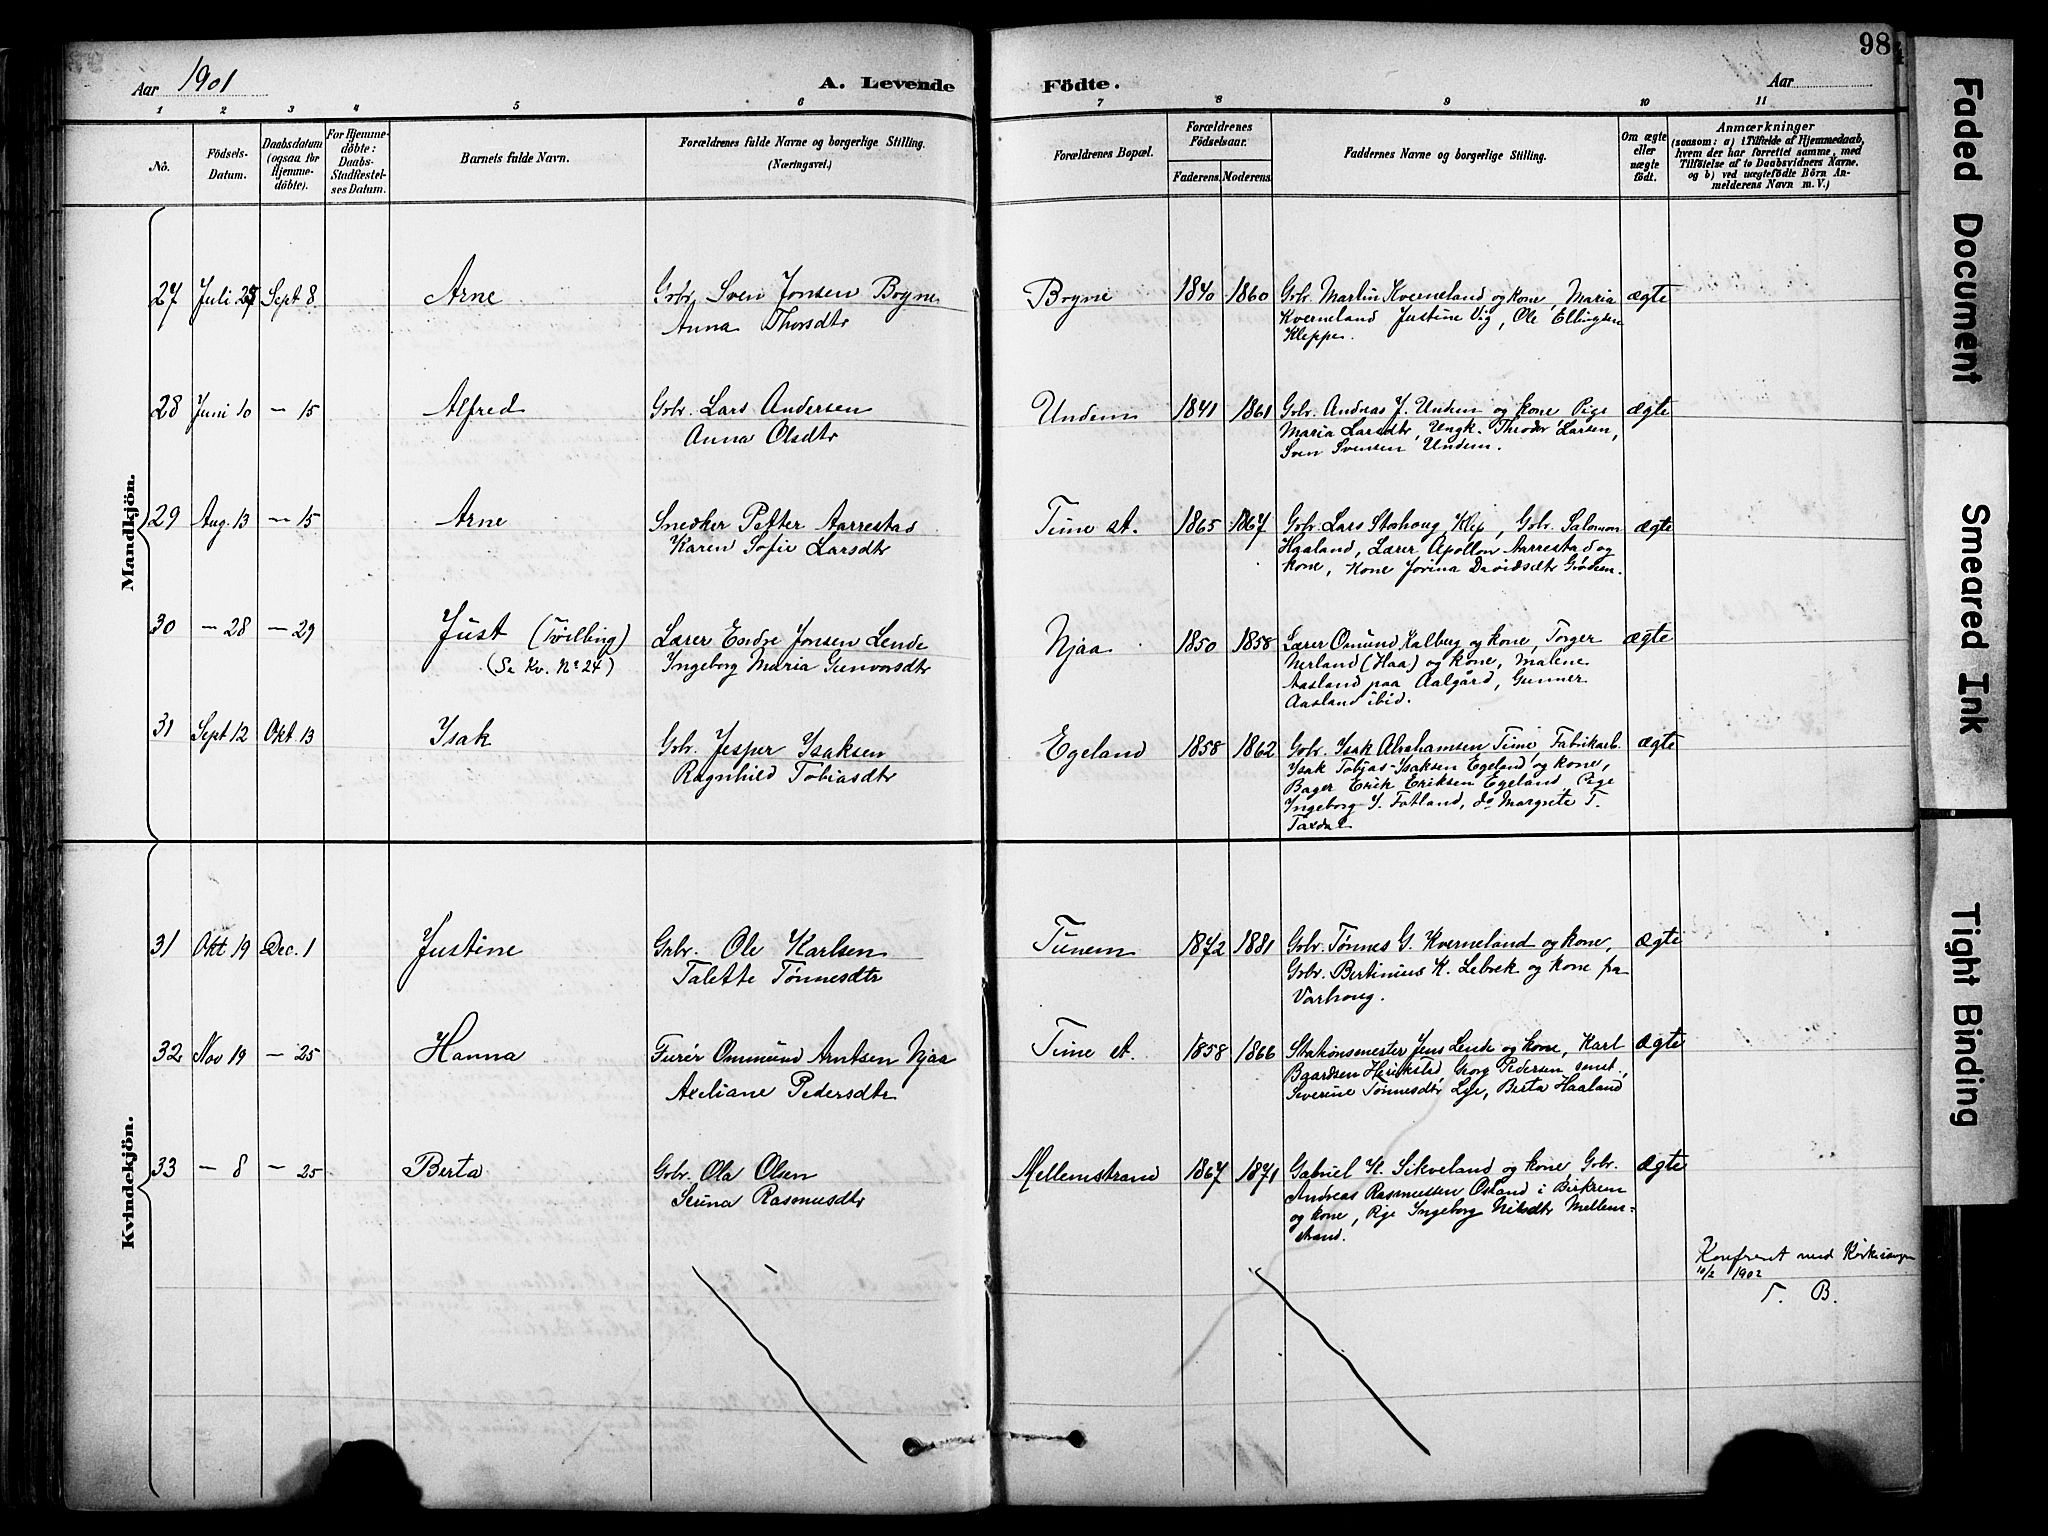 Aar 1901
A. Levende Födte.
Aar
98
1 2 3 4 5 6 7 8 9 10 11
No.
Födsels-Datum.
Daabsdatum (ogsaa for Hjemme-döbte).
For Hjemme-döbte: Daabs-Stadfæstel-ses Datum.
Barnets fulde Navn.
Forældrenes fulde Navne og borgerlige Stilling.
(Næringsvei.)
Forældrenes Bopæl.
Forældrenes Födselsaar.
Faderens. Moderens.
Faddernes Navne og borgerlige Stilling.
Om ægte eller uægte födt.
Anmærkninger
(saasom: a) i Tilfælde af Hjemmedaab,
hvem der har forrettet samme, med
Tilföielse af to Daabsvidners Navne,
og b) ved uægtefödte Börn An-
melderens Navn m. V.)
Mandkjön.
27 Juli 27 Sept 8 Arne Gbr. Sven Jonsen Bryne Bryne 1840 1860 Gbr. Martin Kverneland og kone, Maria ægte
Anna Thorsdtr Kverneland Justine Vig, Ole Ellingsen
Kleppe.
28 Juni 10 — 15 Alfred Gbr. Lars Andersen Undem 1841 1861 Gbr. Andreas J. Undem og kone Pige ægte
Anna Olsdtr Maria Larsdtr, Ungk. Theodor Larsen,
Sven Svensen Undem.
29 Aug. 13 — 15 Arne Snedker Petter Aarrestad Time st. 1865 1867 Gbr. Lars Stahoug Klep, Gbr. Salomon ægte
Karen Sofie Larsdtr Haaland, Lærer Apollon Aarrestad og
kone, Kone Jorina Davidsdtr Grödem.
30 — 28 — 29 Just (Tvilling) Lærer Endre Jonsen Lende Njaa 1850 1858 Lærer Omund Kalberg og kone, Torger ægte
(Se Kv. No 24) Ingeborg Maria Gunvorsdtr Nerland (Haa) og kone, Malene
Aasland paa Aalgård, Gunner
Aasland ibid.
31 Sept 12 Okt. 13 Isak Gbr. Jesper Isaksen Egeland 1858 1862 Gbr. Isak Abrahamsen Time Fabrikarb. ægte
Ragnhild Tobiasdtr Isak Tobias Isaksen Egeland og kone,
Bager Erik Eriksen Egeland Pige
Ingeborg I. Fotland, do Margrete T.
Taxdal
Kvindekjön.
31 Okt 19 Dec. 1 Justine Gbr. Ole Karlsen Tunem 1872 1881 Gbr. Tönnes G. Kverneland og kone, ægte
Talette Tönnesdtr Gbr. Bertinius K. Lebrek og kone fra
Varhoug.
32 Nov 19 — 25 Hanna Furér Ommund Arntsen Njaa Time st. 1858 1866 Stationsmester Jens Lende og kone, Karl ægte
Axeliane Pedersdtr Baardsen Herikstad Georg Pedersen smst.,
Severine Tönnesdtr Lye, Berta Haaland
33 — 8 — 25 Berta Gbr. Ola Olsen Mellemstrand 1867 1871 Gabriel K. Sikveland og kone, Gbr. ægte
Seruna Rasmusdtr Andreas Rasmussen Osland i Birkrem
og kone, Pige Ingeborg Nilsdtr Mellem-
strand.
Konfereret med Kirkesanger
10/2 1902
T. B.
Faded Document
Smeared Ink
Tight Binding